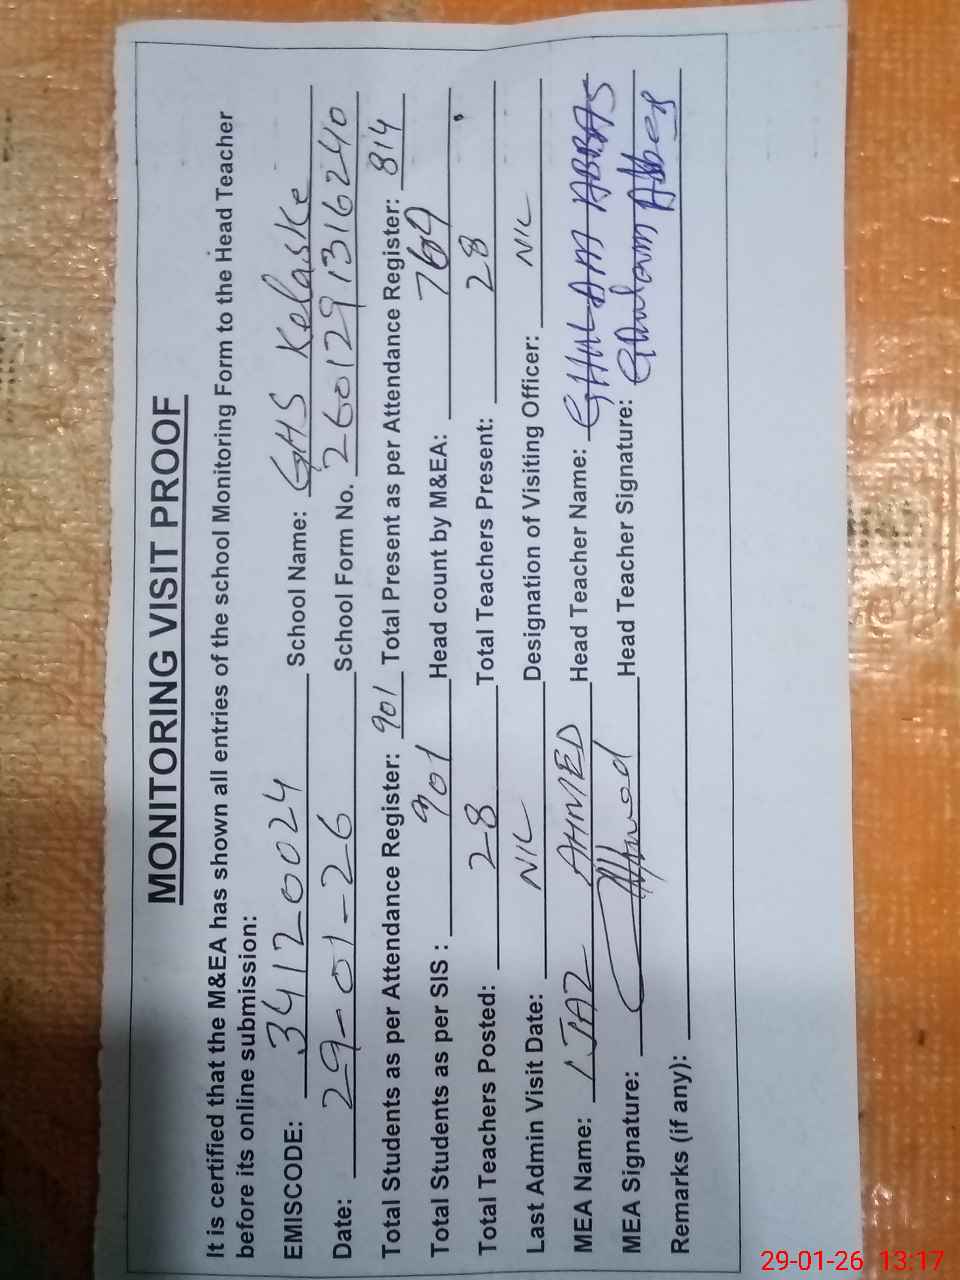 MONITORING VISIT PROOF
It is certified that the M&EA has shown all entries of the school Monitoring Form to the Head Teacher
before its online submission:
EMISCODE: 34120024 School Name: GHS Kelaske
Date: 29-01-26 School Form No. 2601291316240
Total Students as per Attendance Register: 901 Total Present as per Attendance Register: 814
Total Students as per SIS : 901 Head count by M&EA: 769
Total Teachers Posted: 28 Total Teachers Present: 28
Last Admin Visit Date: NIL Designation of Visiting Officer: NIL
MEA Name: IJAZ AHMED Head Teacher Name: GHULAM ABBAS
MEA Signature: Ahmed Head Teacher Signature: Ghulam Abbas
Remarks (if any):
29-01-26 13:17